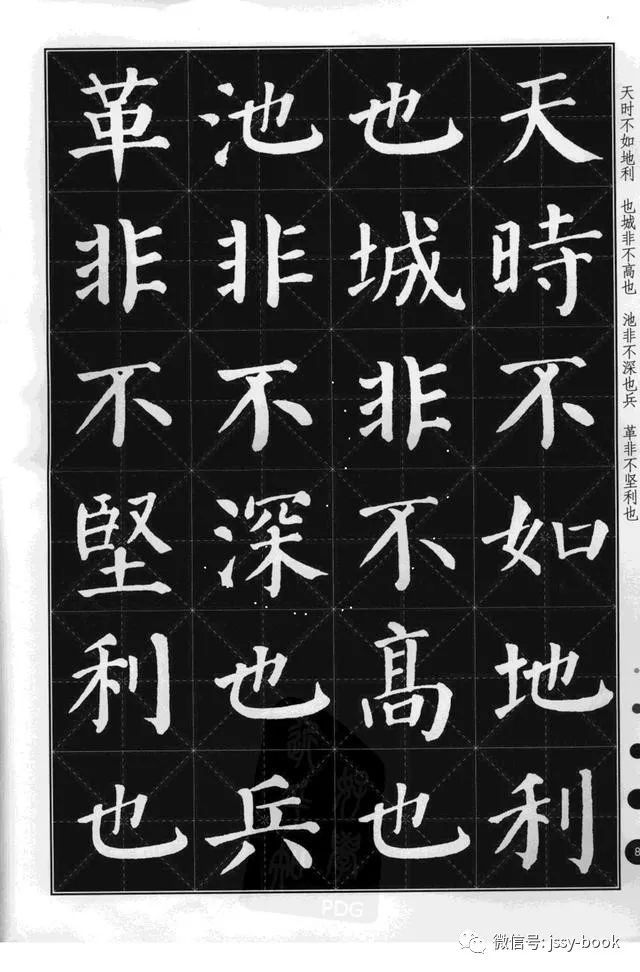 天時不如地利
也城非不高也
池非不深也兵
革非不堅利也
天时不如地利 也城非不高也 池非不深也兵 革非不坚利也
8
PDG
微信号: jssy-book